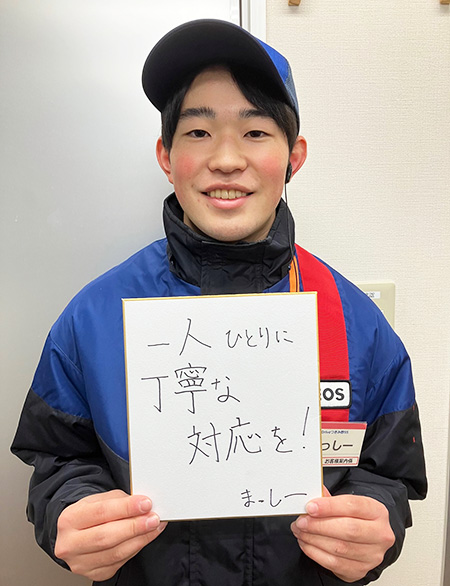 一人ひとりに
丁寧な
対応を!
まっしー
OS
っしー
お客様案内係